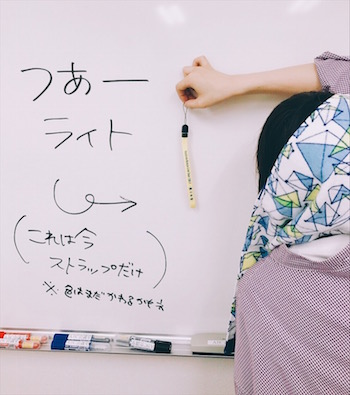 つあー
ライト
(これは今
ストラップだけ)
※色はまだかわるかも☆